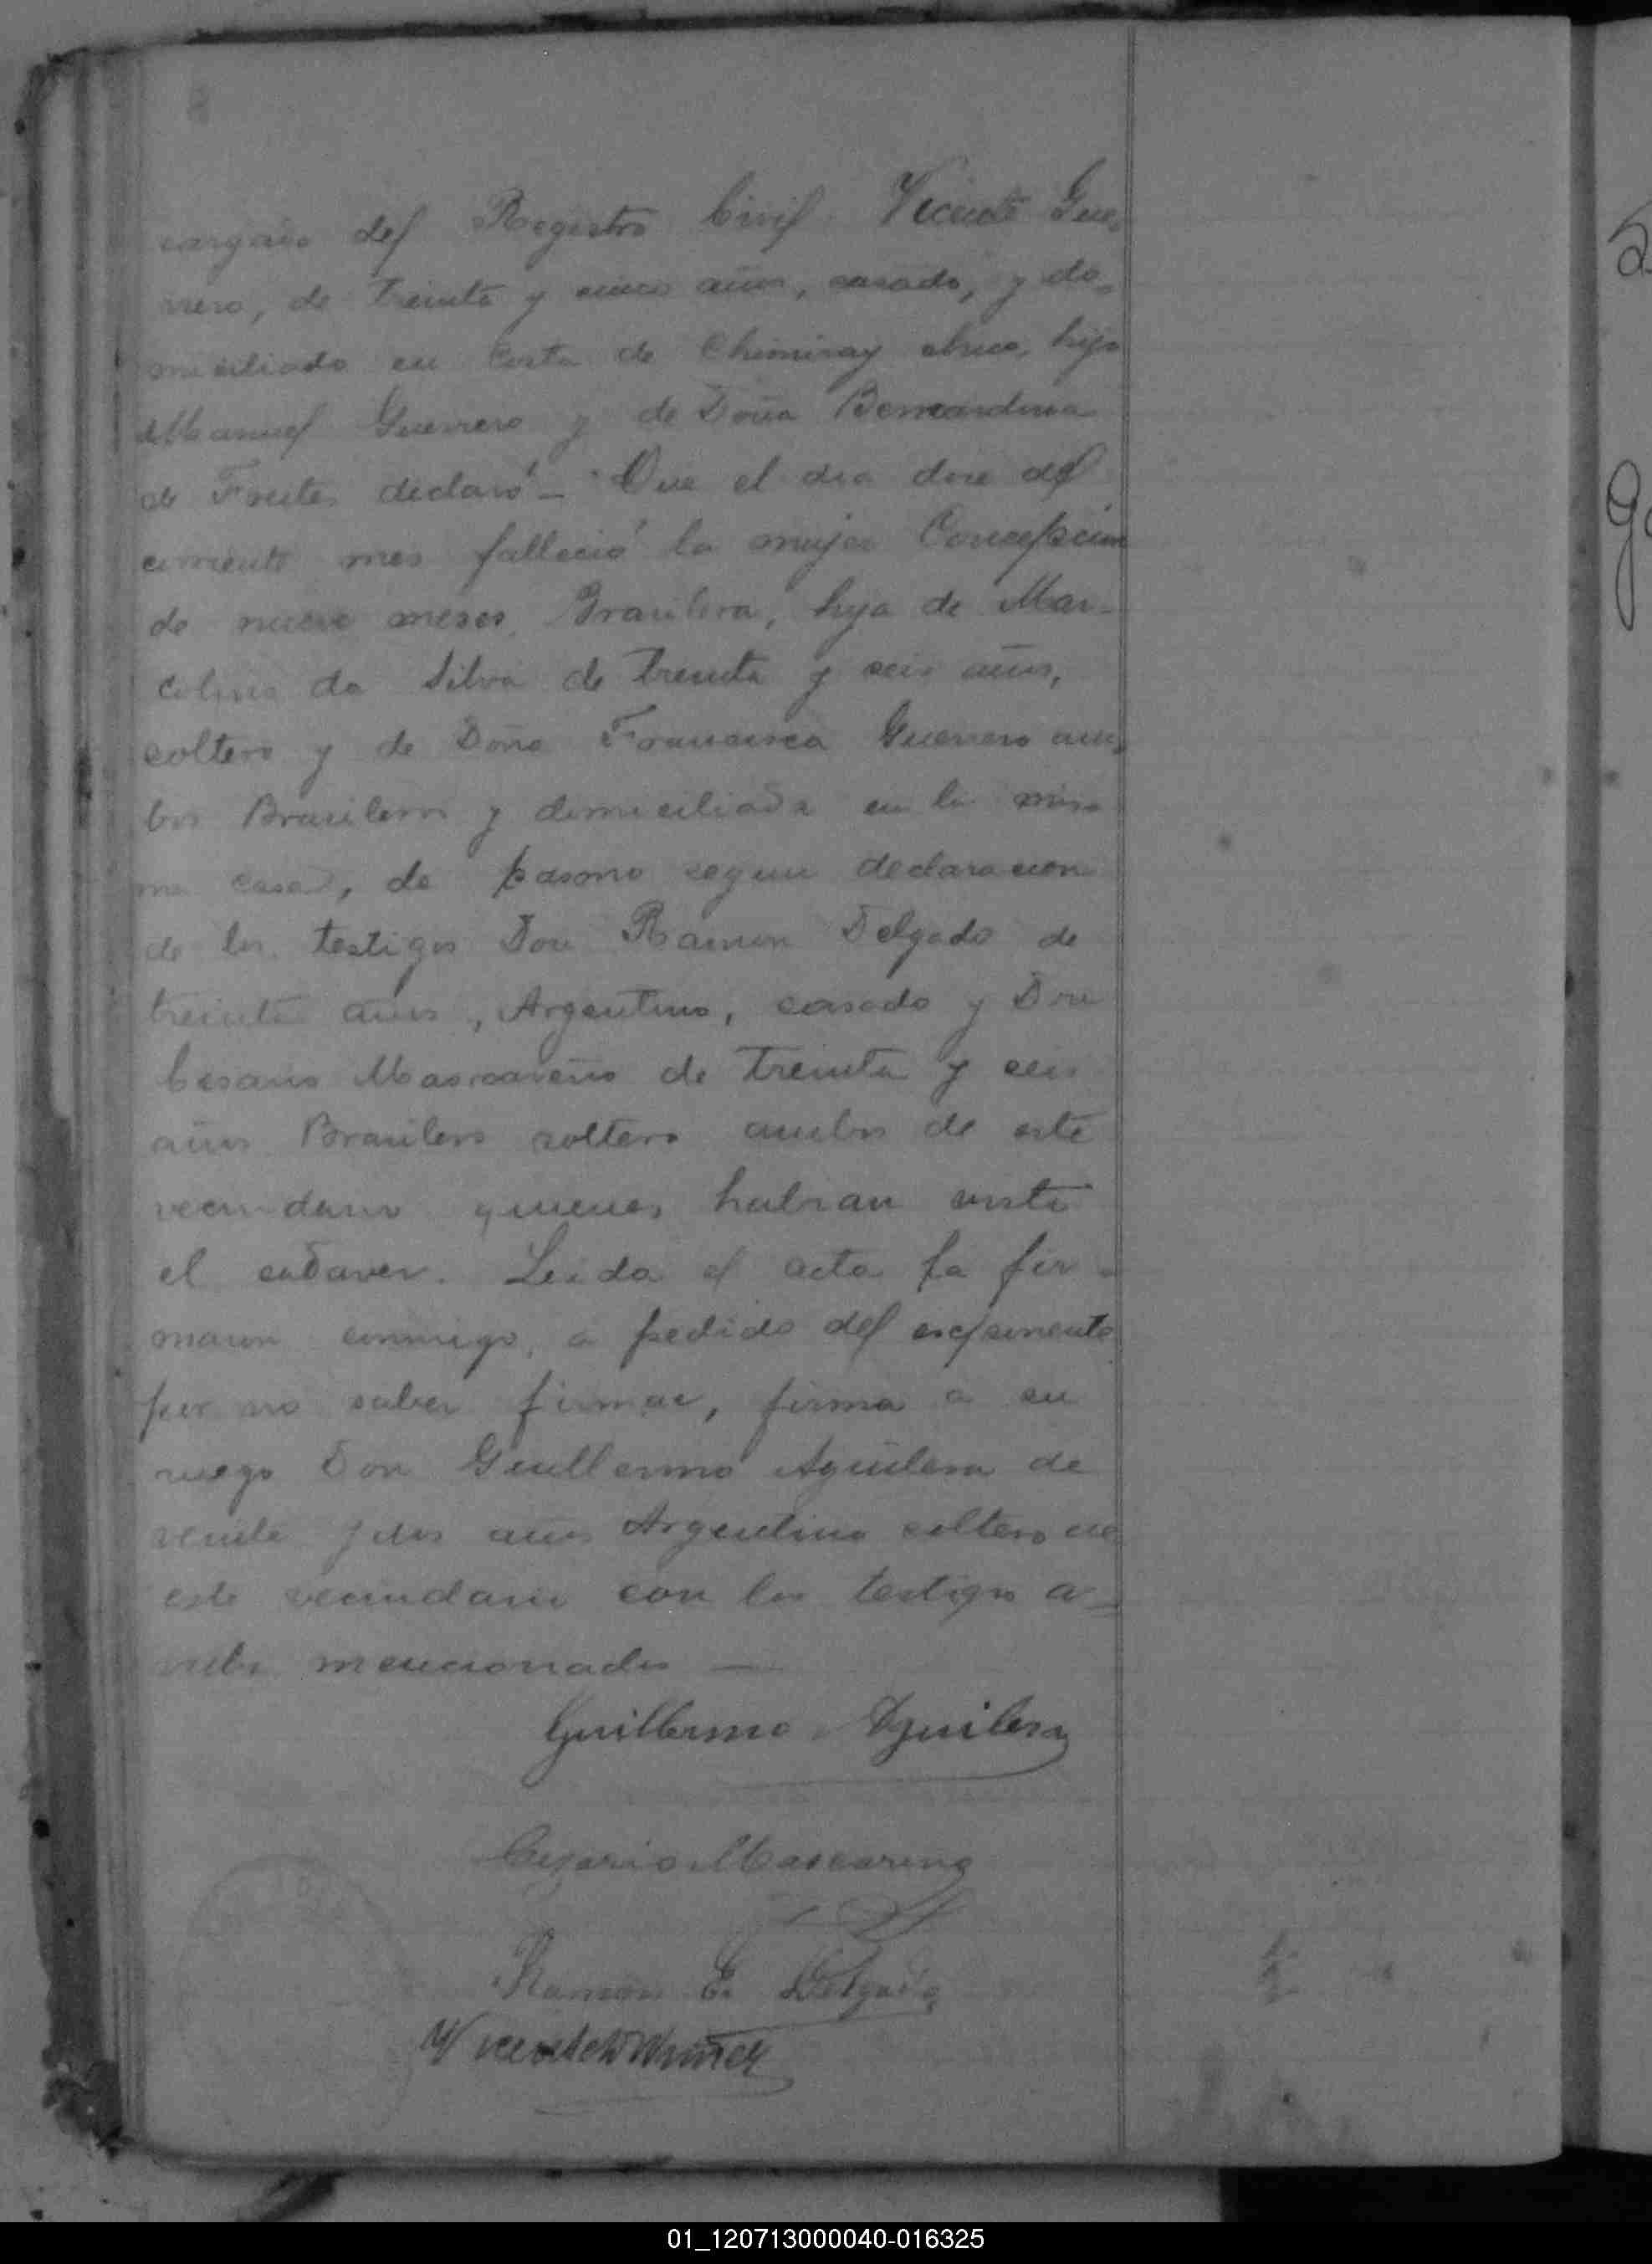 cargado del Registro Civil Vicente Gue-
rrero, de treinta y cinco años, casado, y do-
miciliado en Costa de Chimiray chico, hijo
Manuel Guerrero y de Doña Bernardina
de Freites declaró - Que el dia doce del
corriente mes falleció la mujer Concepcion
de nueve meses, Brasilera, hija de Mar-
colino da Silva de treinta y seis años,
soltero y de Doña Francisca Guerrero am-
bos Brasileros y domiciliada en la mis-
ma casa, de pasmo segun declaracion
de los testigos Don Ramon Delgado de
treinta años, Argentino, casado y Don
Cesario Mascareño de treinta y seis
años Brasilero soltero ambos de este
vecindario quienes habian visto
el cadaver. Leida el acta la fir-
maron conmigo, a pedido del esponente
por no saber firmar, firma a su
ruego Don Guillermo Aguilera de
veinte y dos años Argentino soltero de
este vecindario con los testigos a-
rriba mencionados —
Guillermo Aguilera
Cezario Mascareno
Ramon E. Delgado
01_120713000040-016325